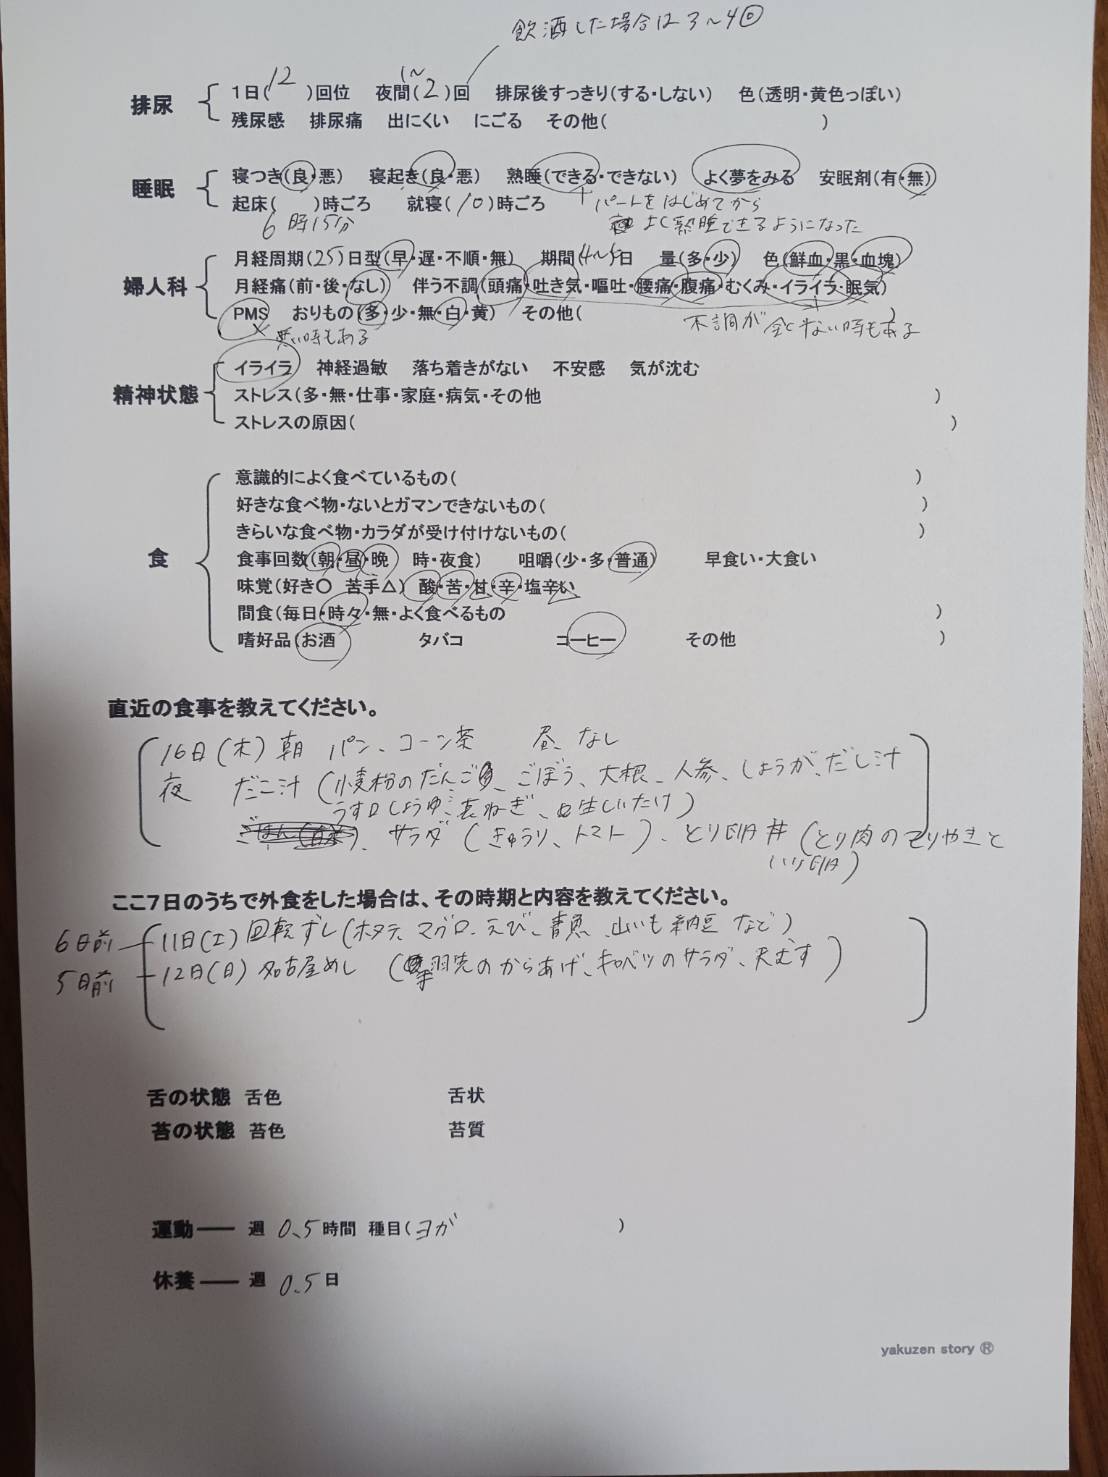 飲酒した場合は3〜4回
排尿 1日(12)回位 夜間(1〜2)回 排尿後すっきり(する・しない) 色(透明・黄色っぽい)
残尿感 排尿痛 出にくい にごる その他( )
睡眠 寝つき(良・悪) 寝起き(良・悪) 熟睡(できる・できない) よく夢をみる 安眠剤(有・無)
起床( )時ごろ 就寝(10)時ごろ パートをはじめてから
6時15分 よく熟睡できるようになった
婦人科 月経周期(25)日型(早・遅・不順・無) 期間4〜5日 量(多・少) 色(鮮血・黒・血塊)
月経痛(前・後・なし) 伴う不調(頭痛・吐き気・嘔吐・腰痛・腹痛・むくみ・イライラ・眠気)
PMS おりもの(多・少・無・白・黄) その他( )
無い時もある 不調が全くない時もある
精神状態 イライラ 神経過敏 落ち着きがない 不安感 気が沈む
ストレス(多・無・仕事・家庭・病気・その他 )
ストレスの原因( )
食 意識的によく食べているもの( )
好きな食べ物・ないとガマンできないもの( )
きらいな食べ物・カラダが受け付けないもの( )
食事回数(朝・昼・晩 時・夜食) 咀嚼(少・多・普通) 早食い・大食い
味覚(好き〇 苦手△) 酸・苦・甘・辛・塩辛い
間食(毎日・時々・無・よく食べるもの )
嗜好品(お酒 タバコ コーヒー その他 )
直近の食事を教えてください。
16日(木)朝 パン、コーン茶 昼、なし
夜 だご汁(小麦粉のだんご、ごぼう、大根、人参、しょうが、だし汁
うす口しょうゆ、長ねぎ、生しいたけ)
サラダ(きゅうり、トマト)、とり卵丼(とり肉のてりやきと
いり卵)
ここ7日のうちで外食をした場合は、その時期と内容を教えてください。
6日前 11日(土)回転ずし(ホタテ、マグロ、えび、青魚、山いも納豆など)
5日前 12日(日)名古屋めし(手羽先のからあげ、キャベツのサラダ、天むす)
舌の状態 舌色 舌状
苔の状態 苔色 苔質
運動── 週 0.5時間 種目(ヨガ )
休養── 週 0.5日
yakuzen story ®